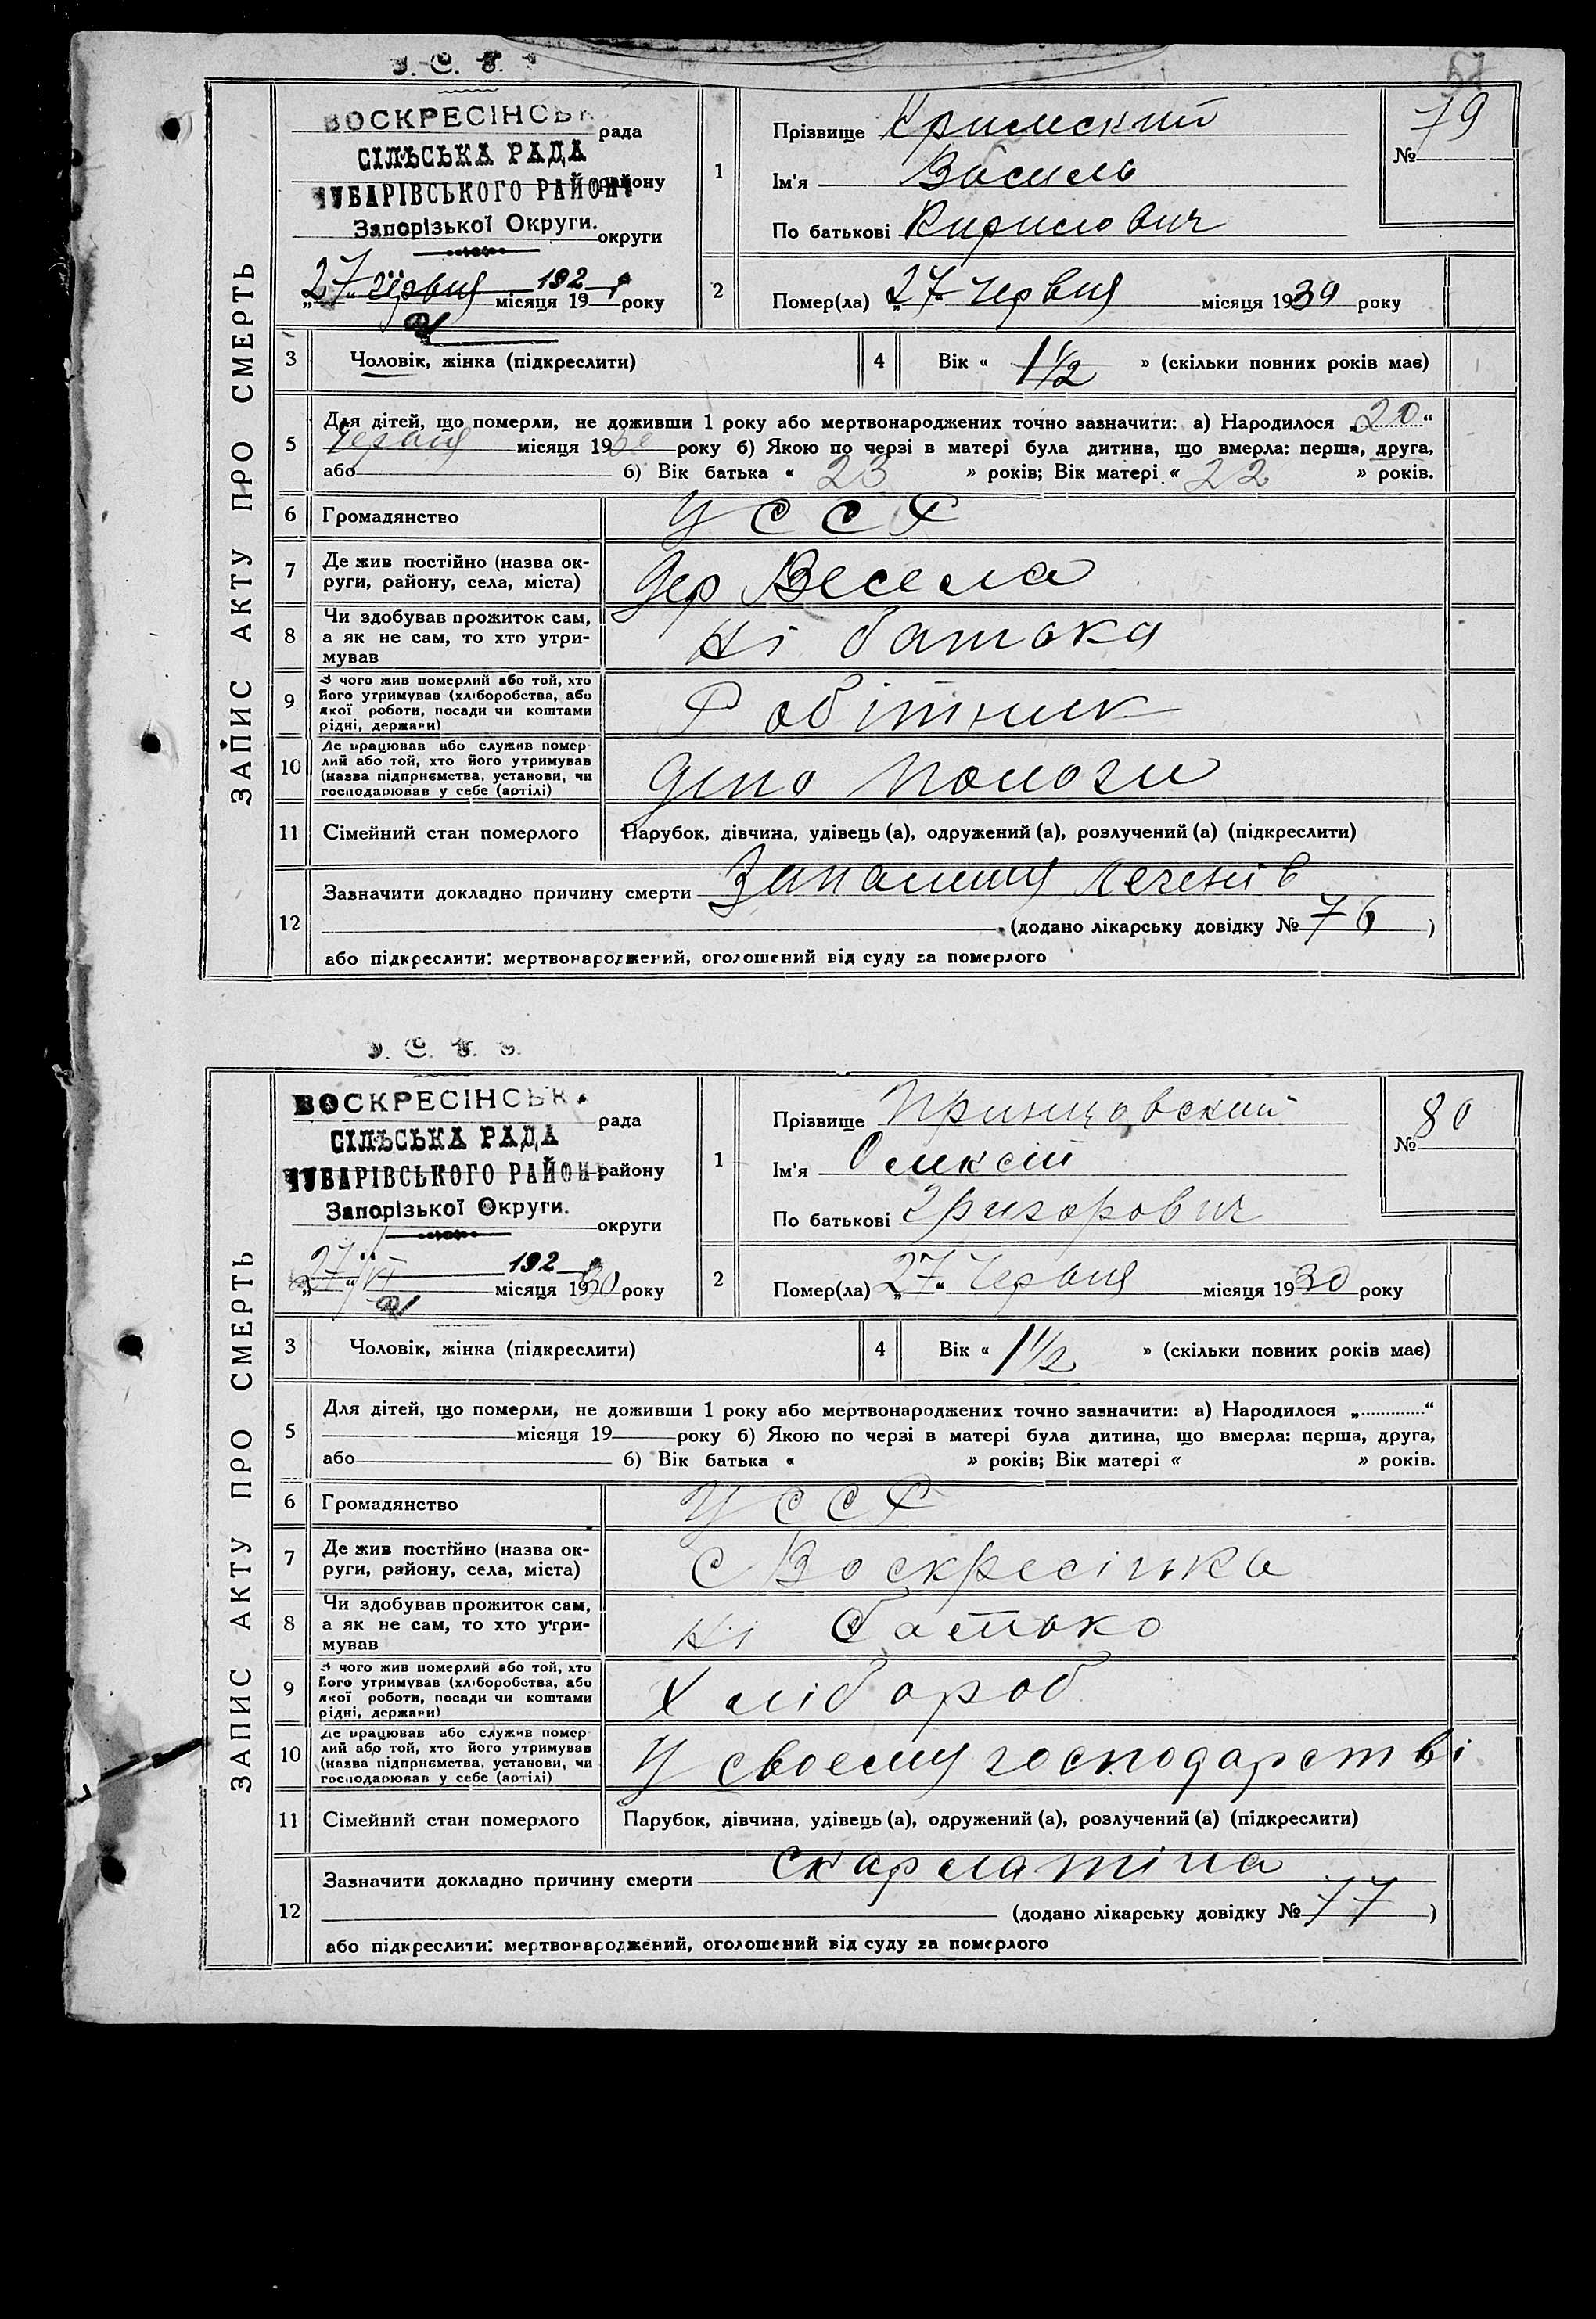 У. С. Р. Р.
57
ЗАПИС АКТУ ПРО СМЕРТЬ
ВОСКРЕСІНСЬК рада
СІЛЬСЬКА РАДА
ЧУБАРІВСЬКОГО РАЙОНУ району
Запорізької Округи.
округи
„27“ червня 192 місяця 19 року
1
Прізвище Кримский
Ім'я Василь
По батькові Кирилович
№ 79
2
Помер(ла) „27“ червня місяця 1930 року
3 Чоловік, жінка (підкреслити)
4 Вік « 1 1/2 » (скільки повних років має)
5 Для дітей, що померли, не доживши 1 року або мертвонароджених точно зазначити: а) Народилося „20“
червня місяця 19 року б) Якою по черзі в матері була дитина, що вмерла: перша, друга,
або б) Вік батька « 23 » років; Вік матері « 22 » років.
6 Громадянство УССР
7 Де жив постійно (назва ок-
руги, району, села, міста) дер Весела
8 Чи здобував прожиток сам,
а як не сам, то хто утри-
мував
Ні батька
9 З чого жив померлий або той, хто
його утримував (хліборобства, або
якої роботи, посади чи коштами
рідні, держави)
Робітник
10 Де працював або служив помер-
лий або той, хто його утримував
(назва підприємства, установи, чи
господарював у себе (артілі)
Депо Пологи
11 Сімейний стан померлого Парубок, дівчина, удівець (а), одружений (а), розлучений (а) (підкреслити)
12 Зазначити докладно причину смерти Запалення легенів
(додано лікарську довідку № 76 )
або підкреслити: мертвонароджений, оголошений від суду за померлого
У. С. Р. Р.
ЗАПИС АКТУ ПРО СМЕРТЬ
ВОСКРЕСІНСЬКА рада
СІЛЬСЬКА РАДА
ЧУБАРІВСЬКОГО РАЙОНУ району
Запорізької Округи.
округи
„27“ VI 192 місяця 1930 року
1
Прізвище
Ім'я Олексій
По батькові Григорович
№ 80
2
Помер(ла) „27“ Червня місяця 1930 року
3 Чоловік, жінка (підкреслити)
4 Вік « 1 1/2 » (скільки повних років має)
5 Для дітей, що померли, не доживши 1 року або мертвонароджених точно зазначити: а) Народилося „ “
місяця 19 року б) Якою по черзі в матері була дитина, що вмерла: перша, друга,
або б) Вік батька « » років; Вік матері « » років.
6 Громадянство УССР
7 Де жив постійно (назва ок-
руги, району, села, міста) С Воскресінка
8 Чи здобував прожиток сам,
а як не сам, то хто утри-
мував
Ні батько
9 З чого жив померлий або той, хто
його утримував (хліборобства, або
якої роботи, посади чи коштами
рідні, держави)
Хлібороб
10 Де працював або служив помер-
лий або той, хто його утримував
(назва підприємства, установи, чи
господарював у себе (артілі)
У своему господарстві
11 Сімейний стан померлого Парубок, дівчина, удівець (а), одружений (а), розлучений (а) (підкреслити)
12 Зазначити докладно причину смерти скарлатіна
(додано лікарську довідку № 77 )
або підкреслити: мертвонароджений, оголошений від суду за померлого